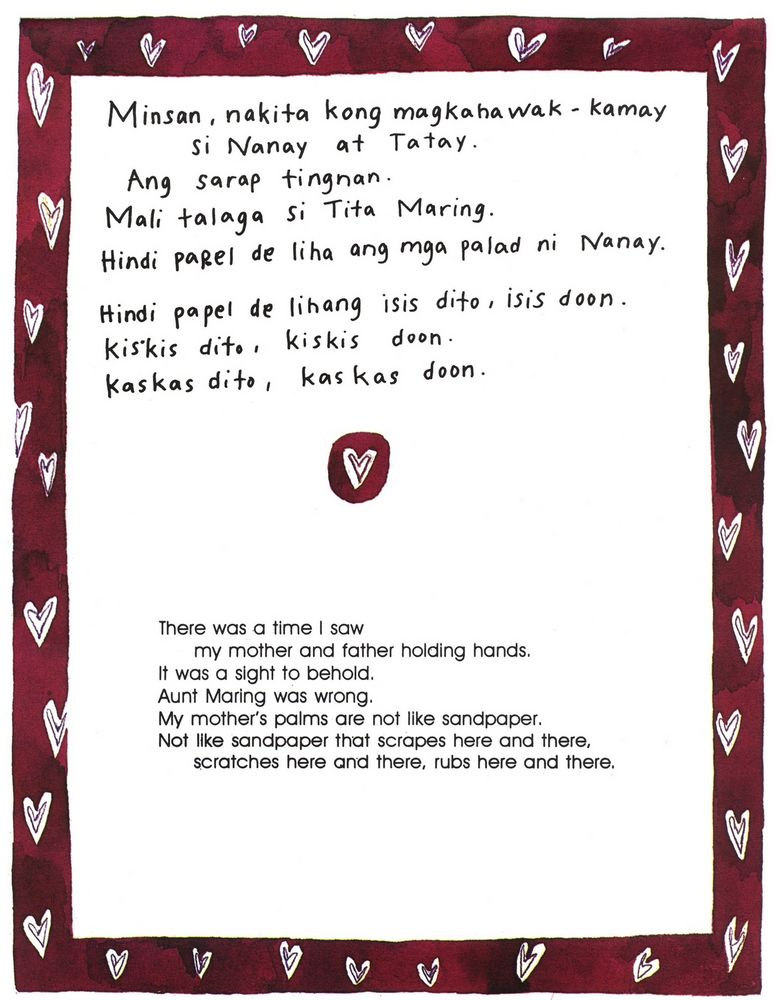 Minsan, nakita kong magkahawak-kamay
si Nanay at Tatay.
Ang sarap tingnan.
Mali talaga si Tita Maring.
Hindi papel de liha ang mga palad ni Nanay.
Hindi papel de lihang isis dito, isis doon.
kiskis dito, kiskis doon.
kaskas dito, kaskas doon.
There was a time I saw
my mother and father holding hands.
It was a sight to behold.
Aunt Maring was wrong.
My mother's palms are not like sandpaper.
Not like sandpaper that scrapes here and there,
scratches here and there, rubs here and there.